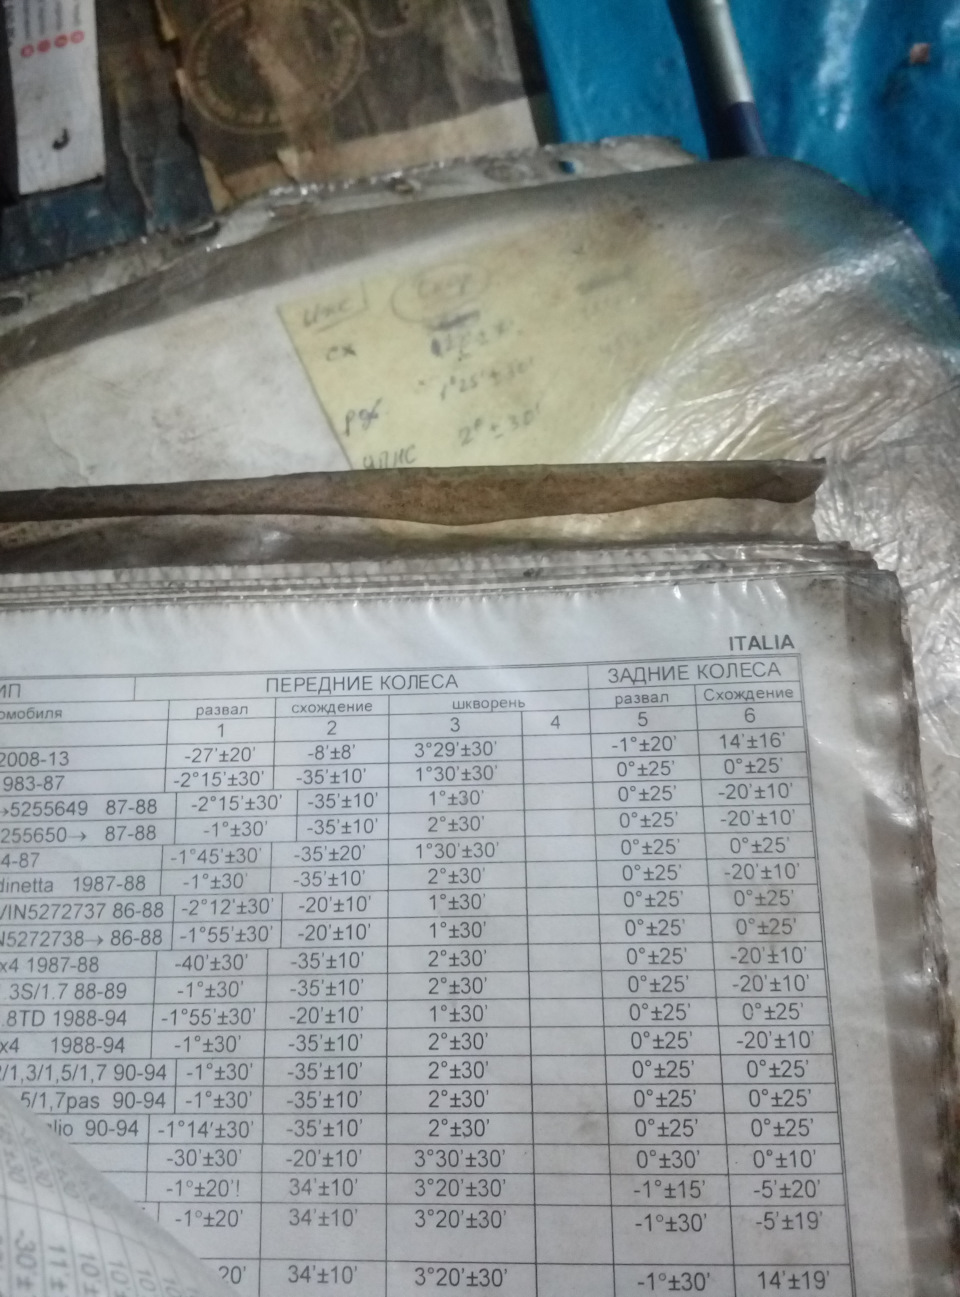 сх
1°25'±30'
2°±30'
ITALIA
ИП ПЕРЕДНИЕ КОЛЕСА ЗАДНИЕ КОЛЕСА
омобиля развал схождение шкворень развал Схождение
1 2 3 4 5 6
2008-13 -27'±20' -8'±8' 3°29'±30' -1°±20' 14'±16'
983-87 -2°15'±30' -35'±10' 1°30'±30' 0°±25' 0°±25'
→5255649 87-88 -2°15'±30' -35'±10' 1°±30' 0°±25' -20'±10'
255650→ 87-88 -1°±30' -35'±10' 2°±30' 0°±25' -20'±10'
4-87 -1°45'±30' -35'±20' 1°30'±30' 0°±25' 0°±25'
dinetta 1987-88 -1°±30' -35'±10' 2°±30' 0°±25' -20'±10'
/IN5272737 86-88 -2°12'±30' -20'±10' 1°±30' 0°±25' 0°±25'
N5272738→ 86-88 -1°55'±30' -20'±10' 1°±30' 0°±25' 0°±25'
x4 1987-88 -40'±30' -35'±10' 2°±30' 0°±25' -20'±10'
.3S/1.7 88-89 -1°±30' -35'±10' 2°±30' 0°±25' -20'±10'
.8TD 1988-94 -1°55'±30' -20'±10' 1°±30' 0°±25' 0°±25'
x4 1988-94 -1°±30' -35'±10' 2°±30' 0°±25' -20'±10'
/1,3/1,5/1,7 90-94 -1°±30' -35'±10' 2°±30' 0°±25' 0°±25'
5/1,7pas 90-94 -1°±30' -35'±10' 2°±30' 0°±25' 0°±25'
lio 90-94 -1°14'±30' -35'±10' 2°±30' 0°±25' 0°±25'
-30'±30' -20'±10' 3°30'±30' 0°±30' 0°±10'
-1°±20'! 34'±10' 3°20'±30' -1°±15' -5'±20'
-1°±20' 34'±10' 3°20'±30' -1°±30' -5'±19'
20' 34'±10' 3°20'±30' -1°±30' 14'±19'